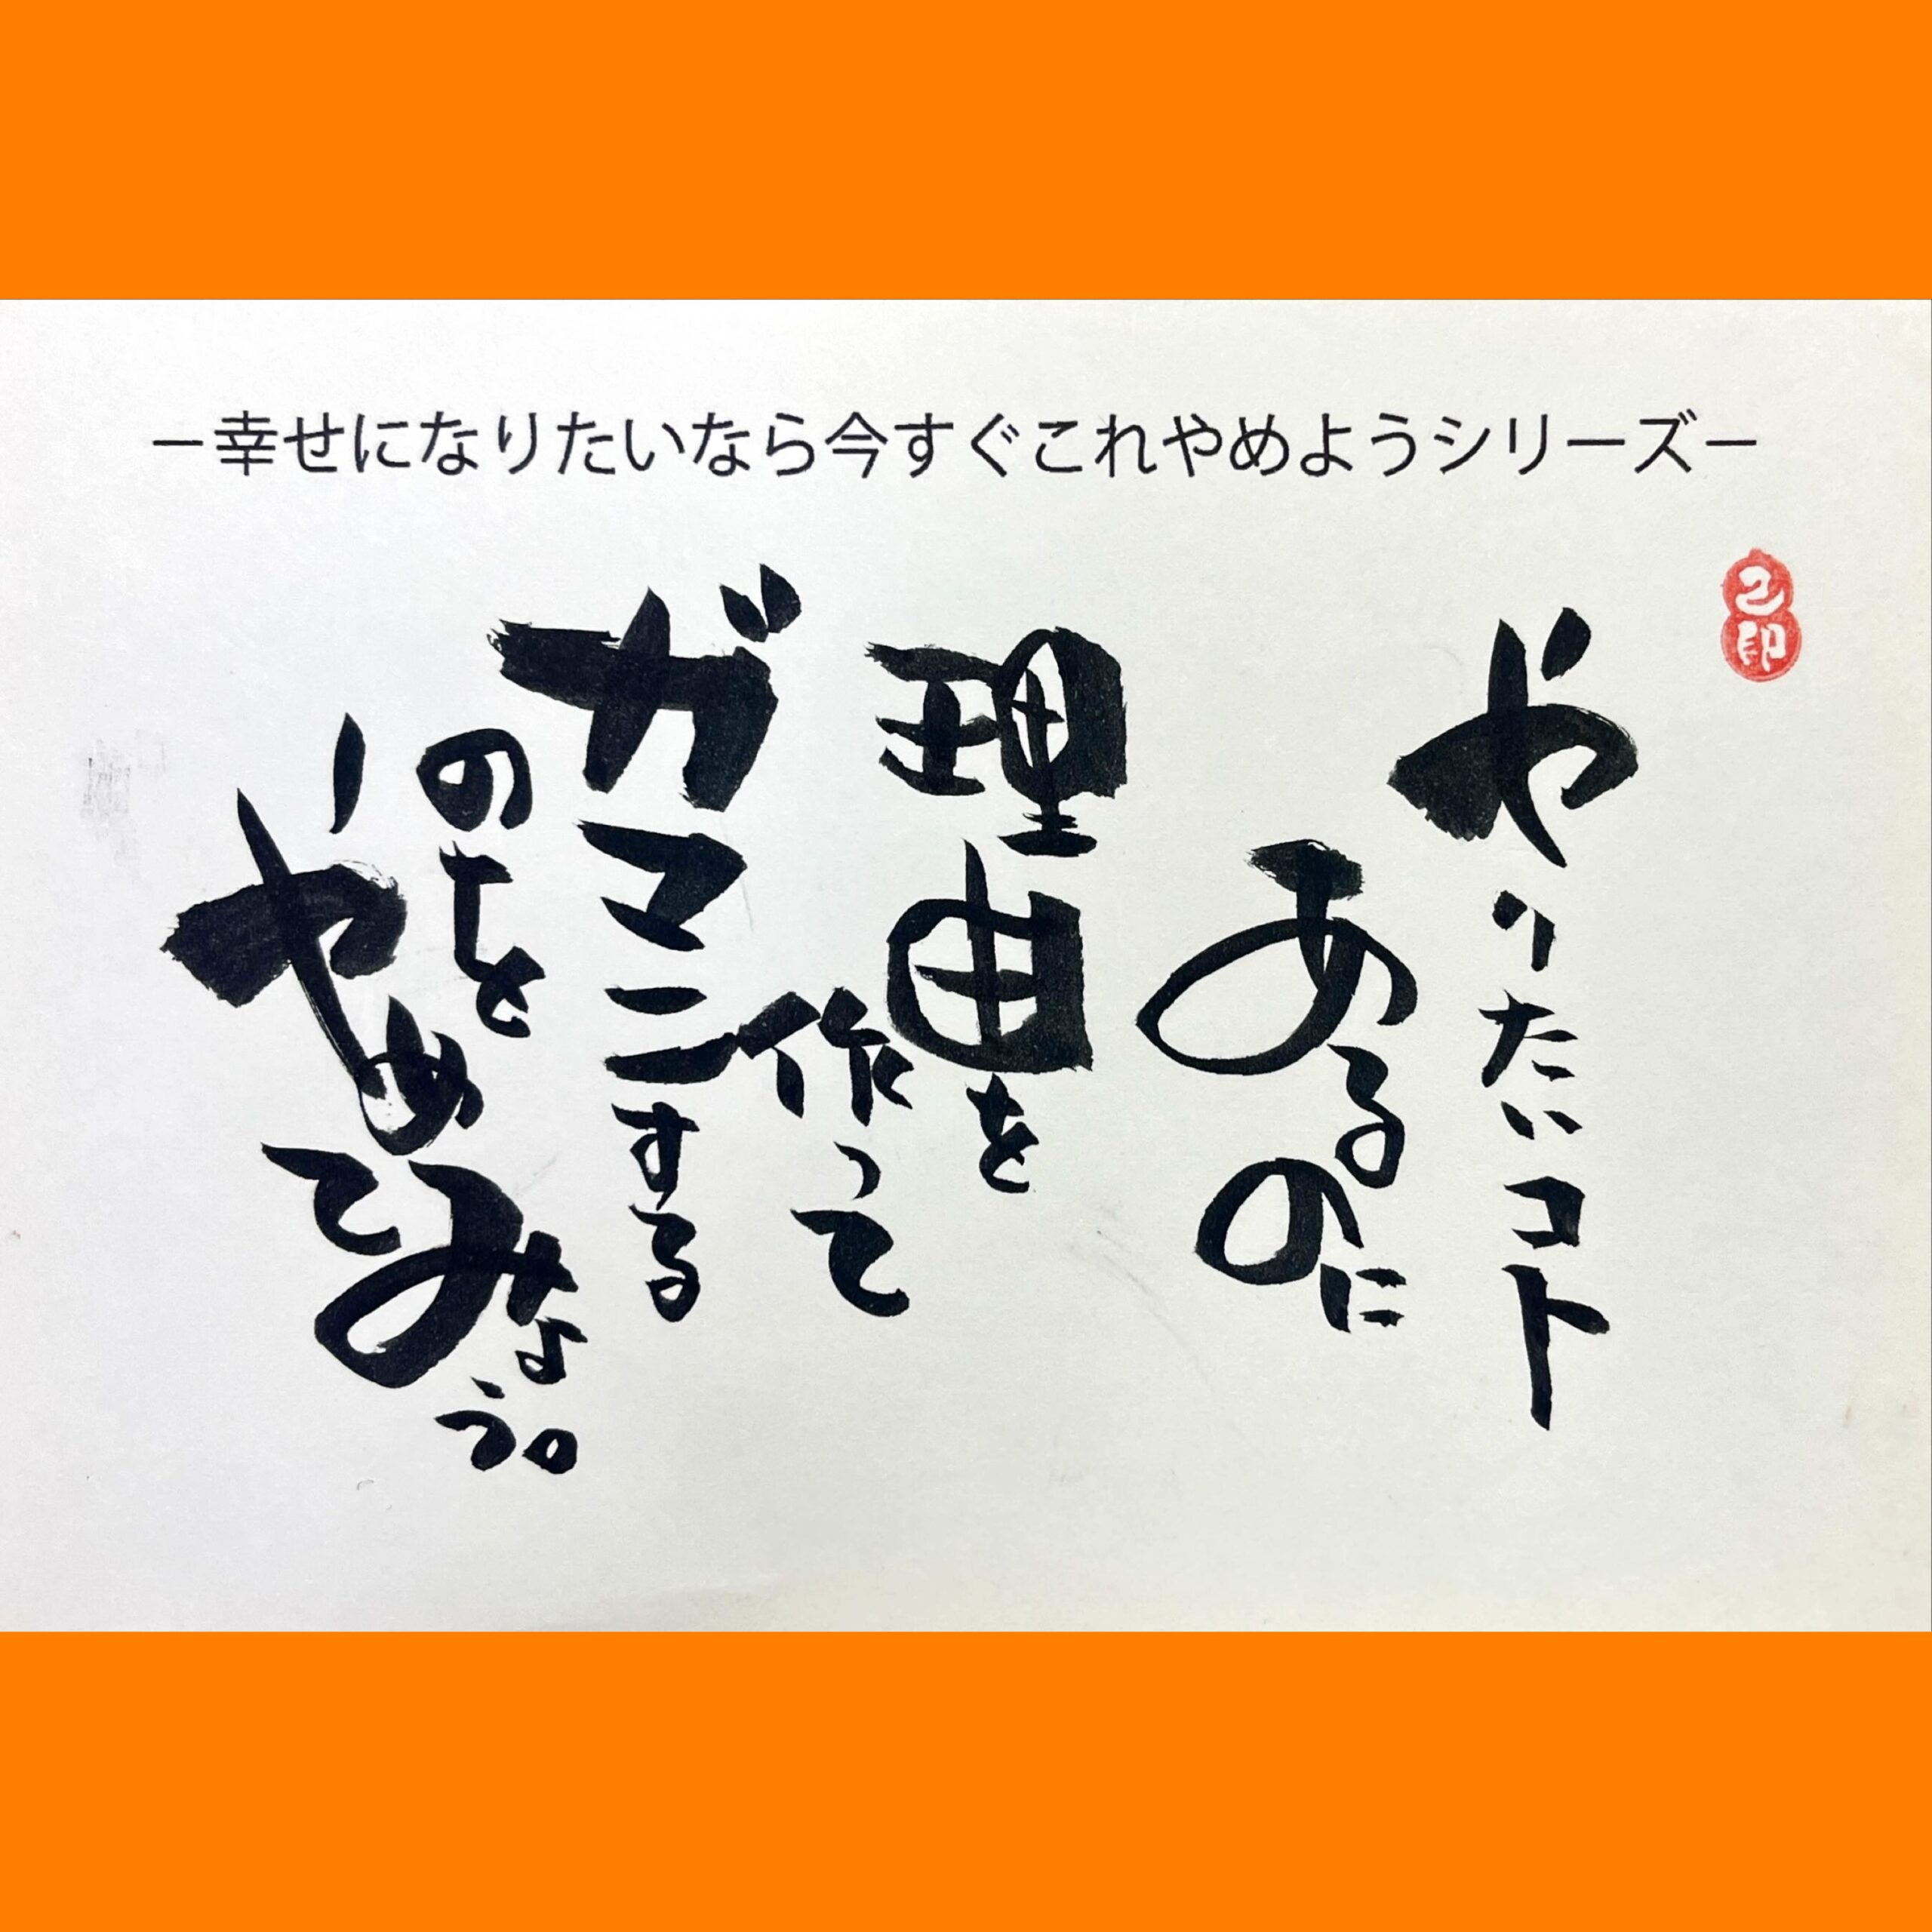 －幸せになりたいなら今すぐこれやめようシリーズ－
やりたいコト
あるのに
理由を
作って
ガマンする
のを
やめて
みよう。
己印